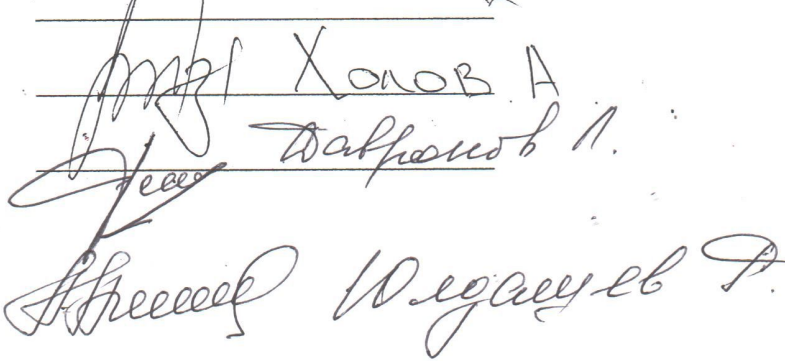 Холов А
Давронов Л.
Юлдашев Р.